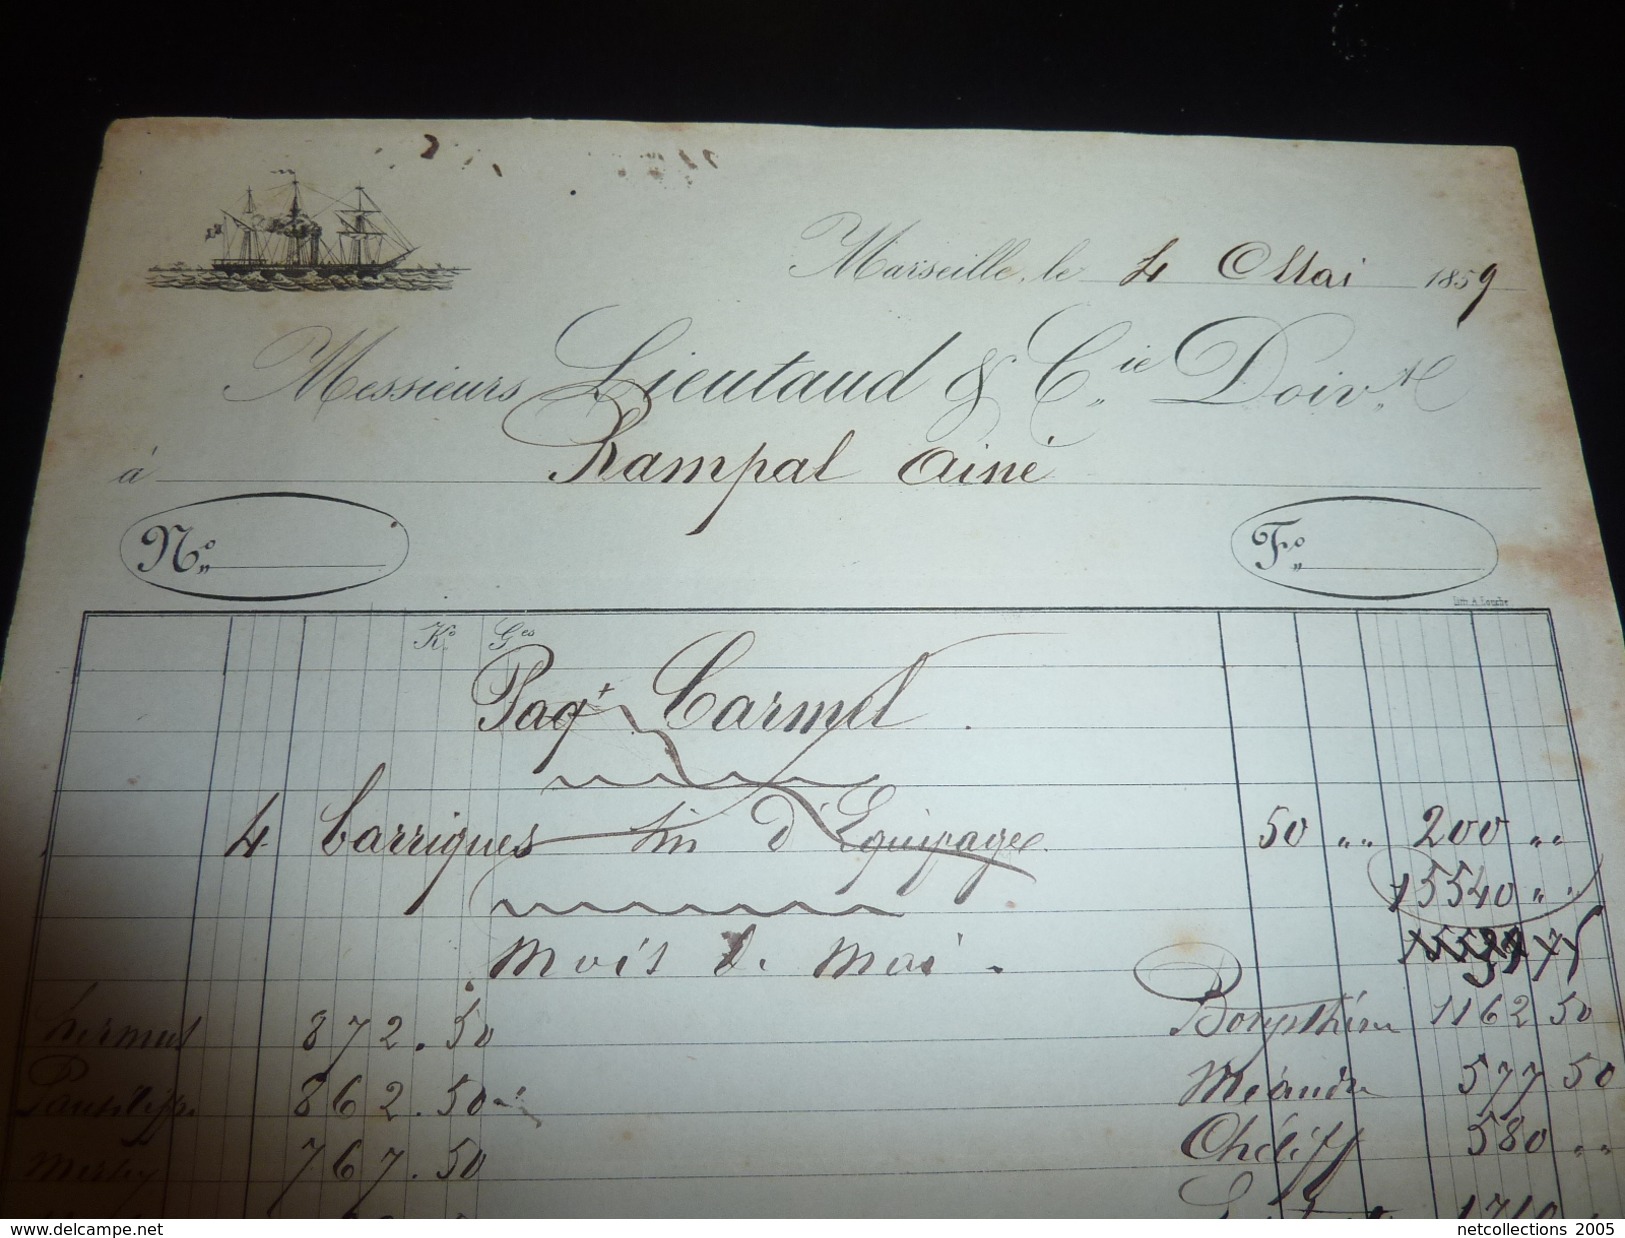 Marseille, le 4 Mai 1859
Messieurs Lieutaud & Cie Doivt
à Rampal Ainé
No
Fo
Lith. A. Louche
Ko Ges
Paqt Carmel.
4 Barriques vin d'Equipage 50 " " 200 " "
15540 " "
Mois de Mai.
872.50 1162 50
862.50 Méandre 577 50
Mersey 767.50 Chéliff 580 " "
1710
www.delcampe.net
netcollections 2005